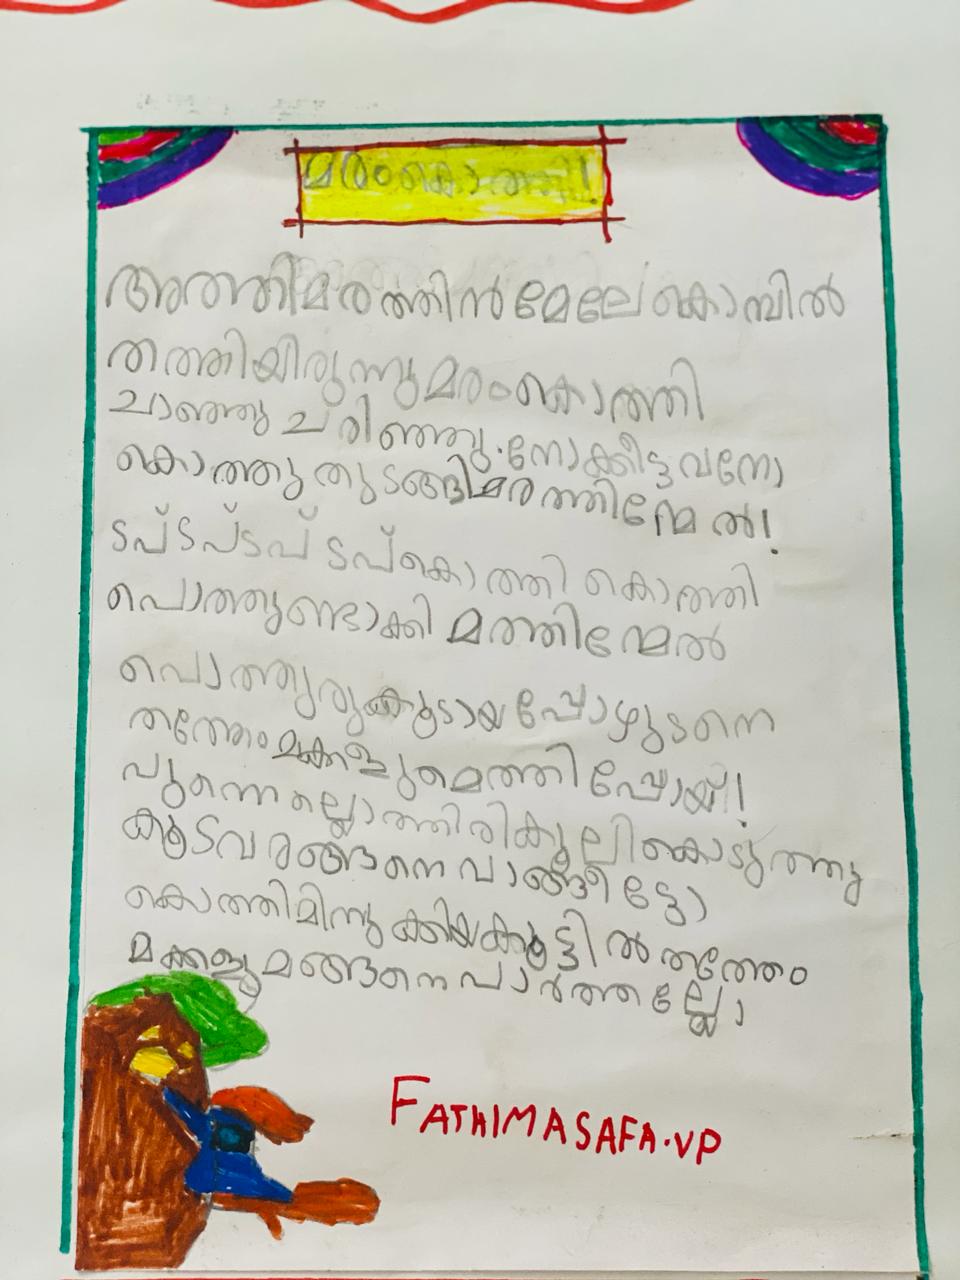 മരംകൊത്തി!
അത്തിമരത്തിൻമേലേകൊമ്പിൽ
തത്തിയിരുന്നുമരംകൊത്തി
ചാഞ്ഞു ചരിഞ്ഞു.നോക്കീട്ടവനോ
കൊത്തു തുടങ്ങിമരത്തിന്മേൽ!
ടപ്ടപ്ടപ് ടപ്കൊത്തി കൊത്തി
പൊത്തുണ്ടാക്കി മത്തിന്മേൽ
പൊത്തുരുകൂടായപ്പോഴുടനെ
തത്തേം മക്കളുമെത്തിപ്പോയ്!
പുന്നെല്ലൊത്തിരികൂലികൊടുത്തു
കൂടവരങ്ങനെ വാങ്ങീട്ടോ
കൊത്തിമിനുക്കിയകൂട്ടിൽ തത്തേം
മക്കളുമങ്ങനെപാർത്തല്ലോ
FATHIMASAFA.VP